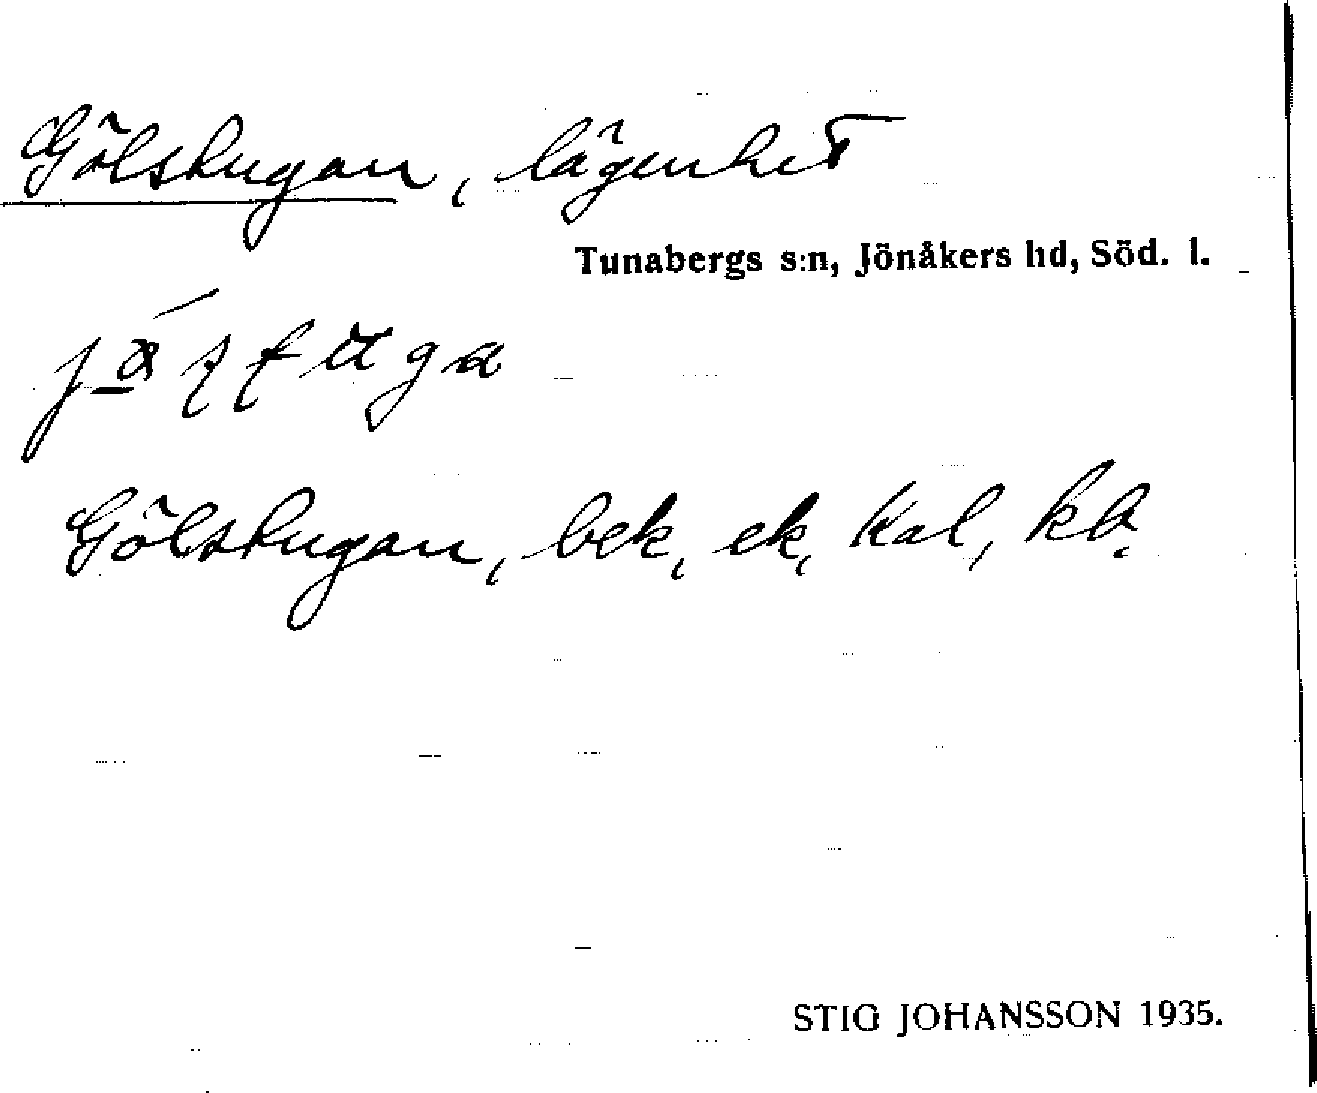 Gölstugan, lägenhet
Tunabergs s:n, Jönåkers hd, Söd. l.
Gölstugan, bek, ek, kal, kb.
STIG JOHANSSON 1935.